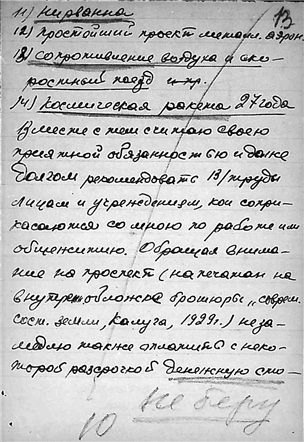 13
11) Нирванна
12) Простойший проект метал. аэрон.
13) Сопротивление воздуха и ско-
ростный поезд и пр.
14) Космическая ракета 27 года
Вместе с тем считаю своею
приятной обязанностью и даже
долгом рекомендовать В/труды
лицам и учреждениям, кои сопри-
касаются со мною по работе или
общежитию. Обращая внима-
ние на проспект (напечатан на
внутр. обложке брошюры „соврем.
сост. земли, Калуга, 1929г.) неза-
медлю также оплатить с неко-
торой разсрочкой денежную сто-
не беру
10